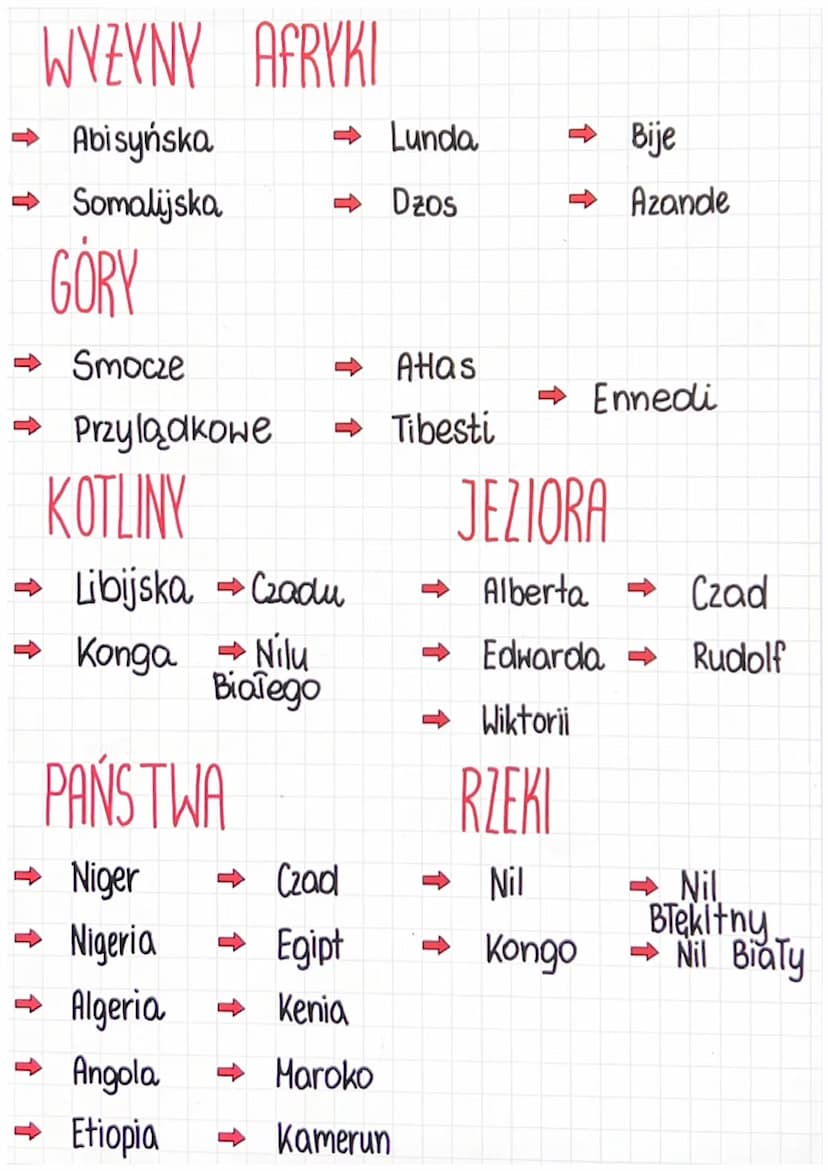 WYŻYNY AFRYKI
➡ Abisyńska ➡ Lunda ➡ Bije
➡ Somalijska ➡ Dżos ➡ Azande
GÓRY
➡ Smocze ➡ Atlas
➡ Ennedi
➡ Przylądkowe ➡ Tibesti
KOTLINY
➡ Libijska ➡ Czadu
➡ Konga ➡ Nilu
Białego
JEZIORA
➡ Alberta ➡ Czad
➡ Edwarda ➡ Rudolf
➡ Wiktorii
PAŃSTWA
➡ Niger ➡ Czad
➡ Nigeria ➡ Egipt
➡ Algeria ➡ Kenia
➡ Angola ➡ Maroko
➡ Etiopia ➡ Kamerun
RZEKI
➡ Nil ➡ Nil
Błękitny
➡ Kongo ➡ Nil Biały